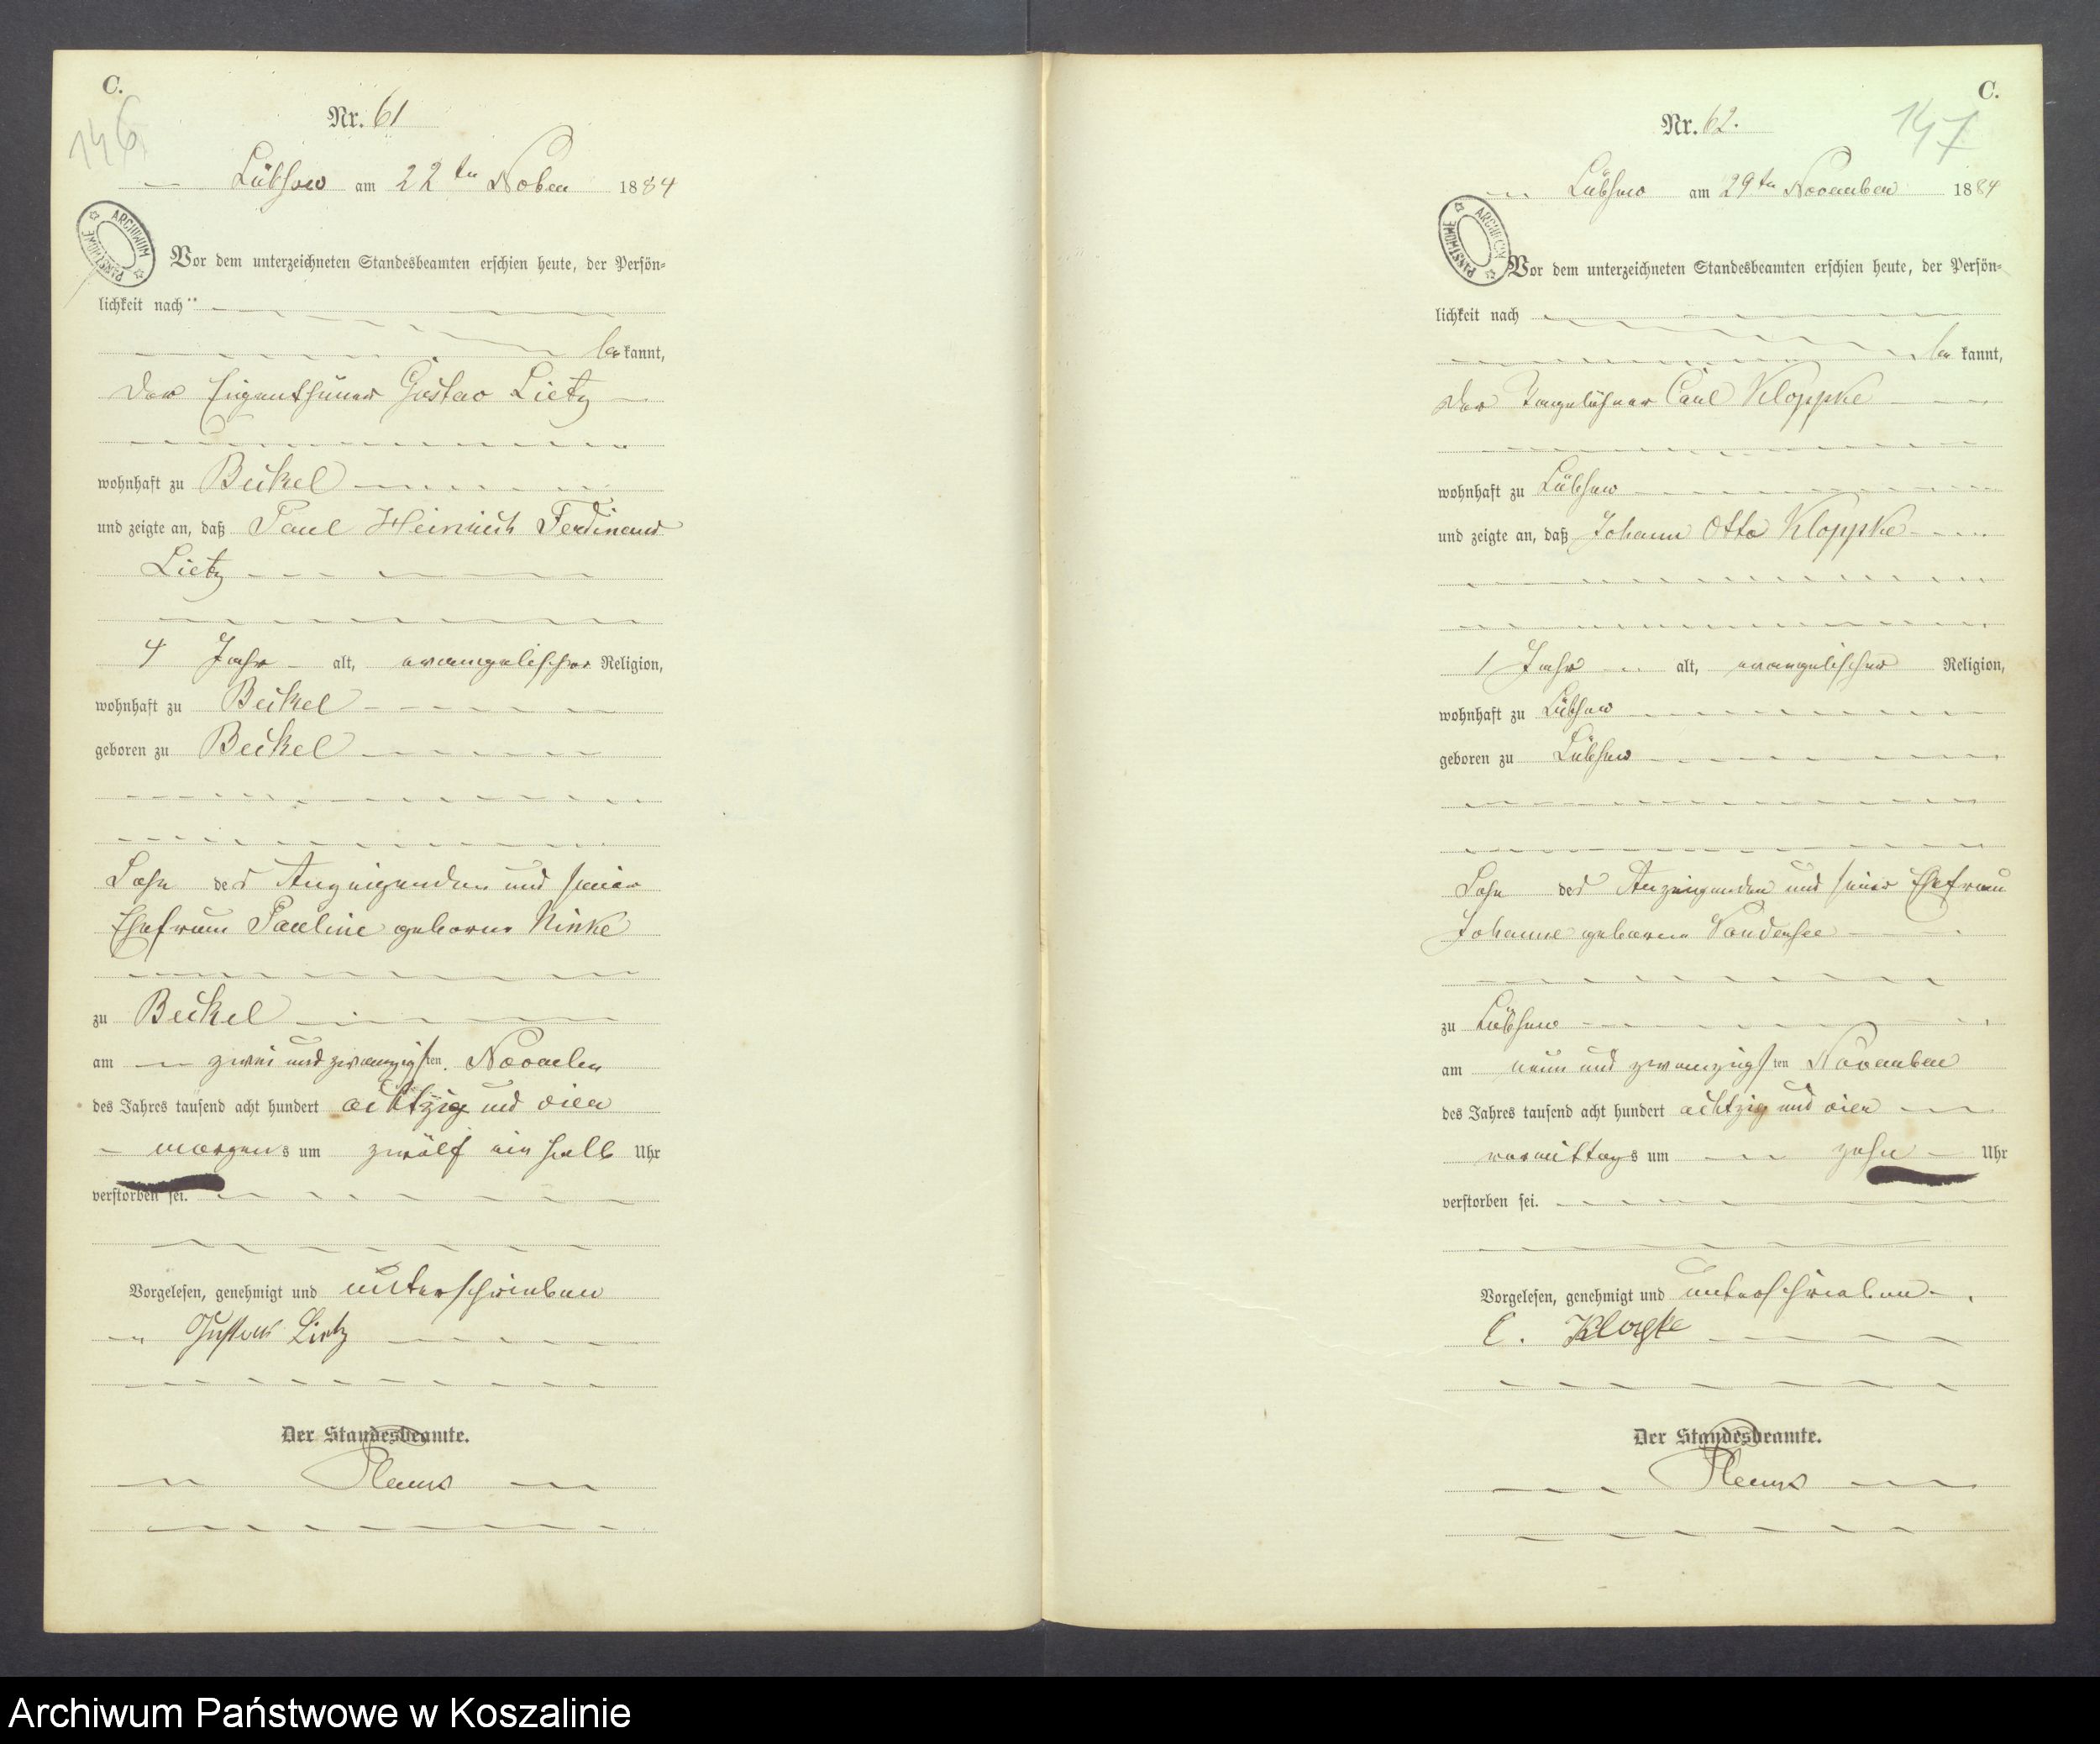 C.
146
Nr. 61
Lübsow am 22ten Novber 1884
ARCHIWUM PAŃSTWOWE
Vor dem unterzeichneten Standesbeamten erschien heute, der Persön=
lichkeit nach
bekannt,
der Eigenthümer Gustav Lietz
wohnhaft zu Beikel
und zeigte an, daß Paul Heinrich Ferdinand
Lietz
4 Jahr alt, evangelischer Religion,
wohnhaft zu Beikel
geboren zu Beikel
Sohn des Anzeigenden und seiner
Ehefrau Pauline geborne Ninke
zu Beikel
am zwei und zwanzigsten November
des Jahres tausend acht hundert achtzig und vier
morgens um zwölf ein halb Uhr
verstorben sei.
Vorgelesen, genehmigt und unterschrieben
Gustav Lietz
Der Standesbeamte.
C.
147
Nr. 62.
Lübsow am 29ten November 1884
ARCHIWUM PAŃSTWOWE
Vor dem unterzeichneten Standesbeamten erschien heute, der Persön=
lichkeit nach
bekannt,
der Tagelöhner Carl Kloppke
wohnhaft zu Lübsow
und zeigte an, daß Johann Otto Kloppke
1 Jahr alt, evangelischer Religion,
wohnhaft zu Lübsow
geboren zu Lübsow
Sohn des Anzeigenden und seiner Ehefrau
Johanne geborne Vandersee
zu Lübsow
am neun und zwanzigsten November
des Jahres tausend acht hundert achtzig und vier
vormittags um zehn Uhr
verstorben sei.
Vorgelesen, genehmigt und unterschrieben
C. Klopke
Der Standesbeamte.
Archiwum Państwowe w Koszalinie